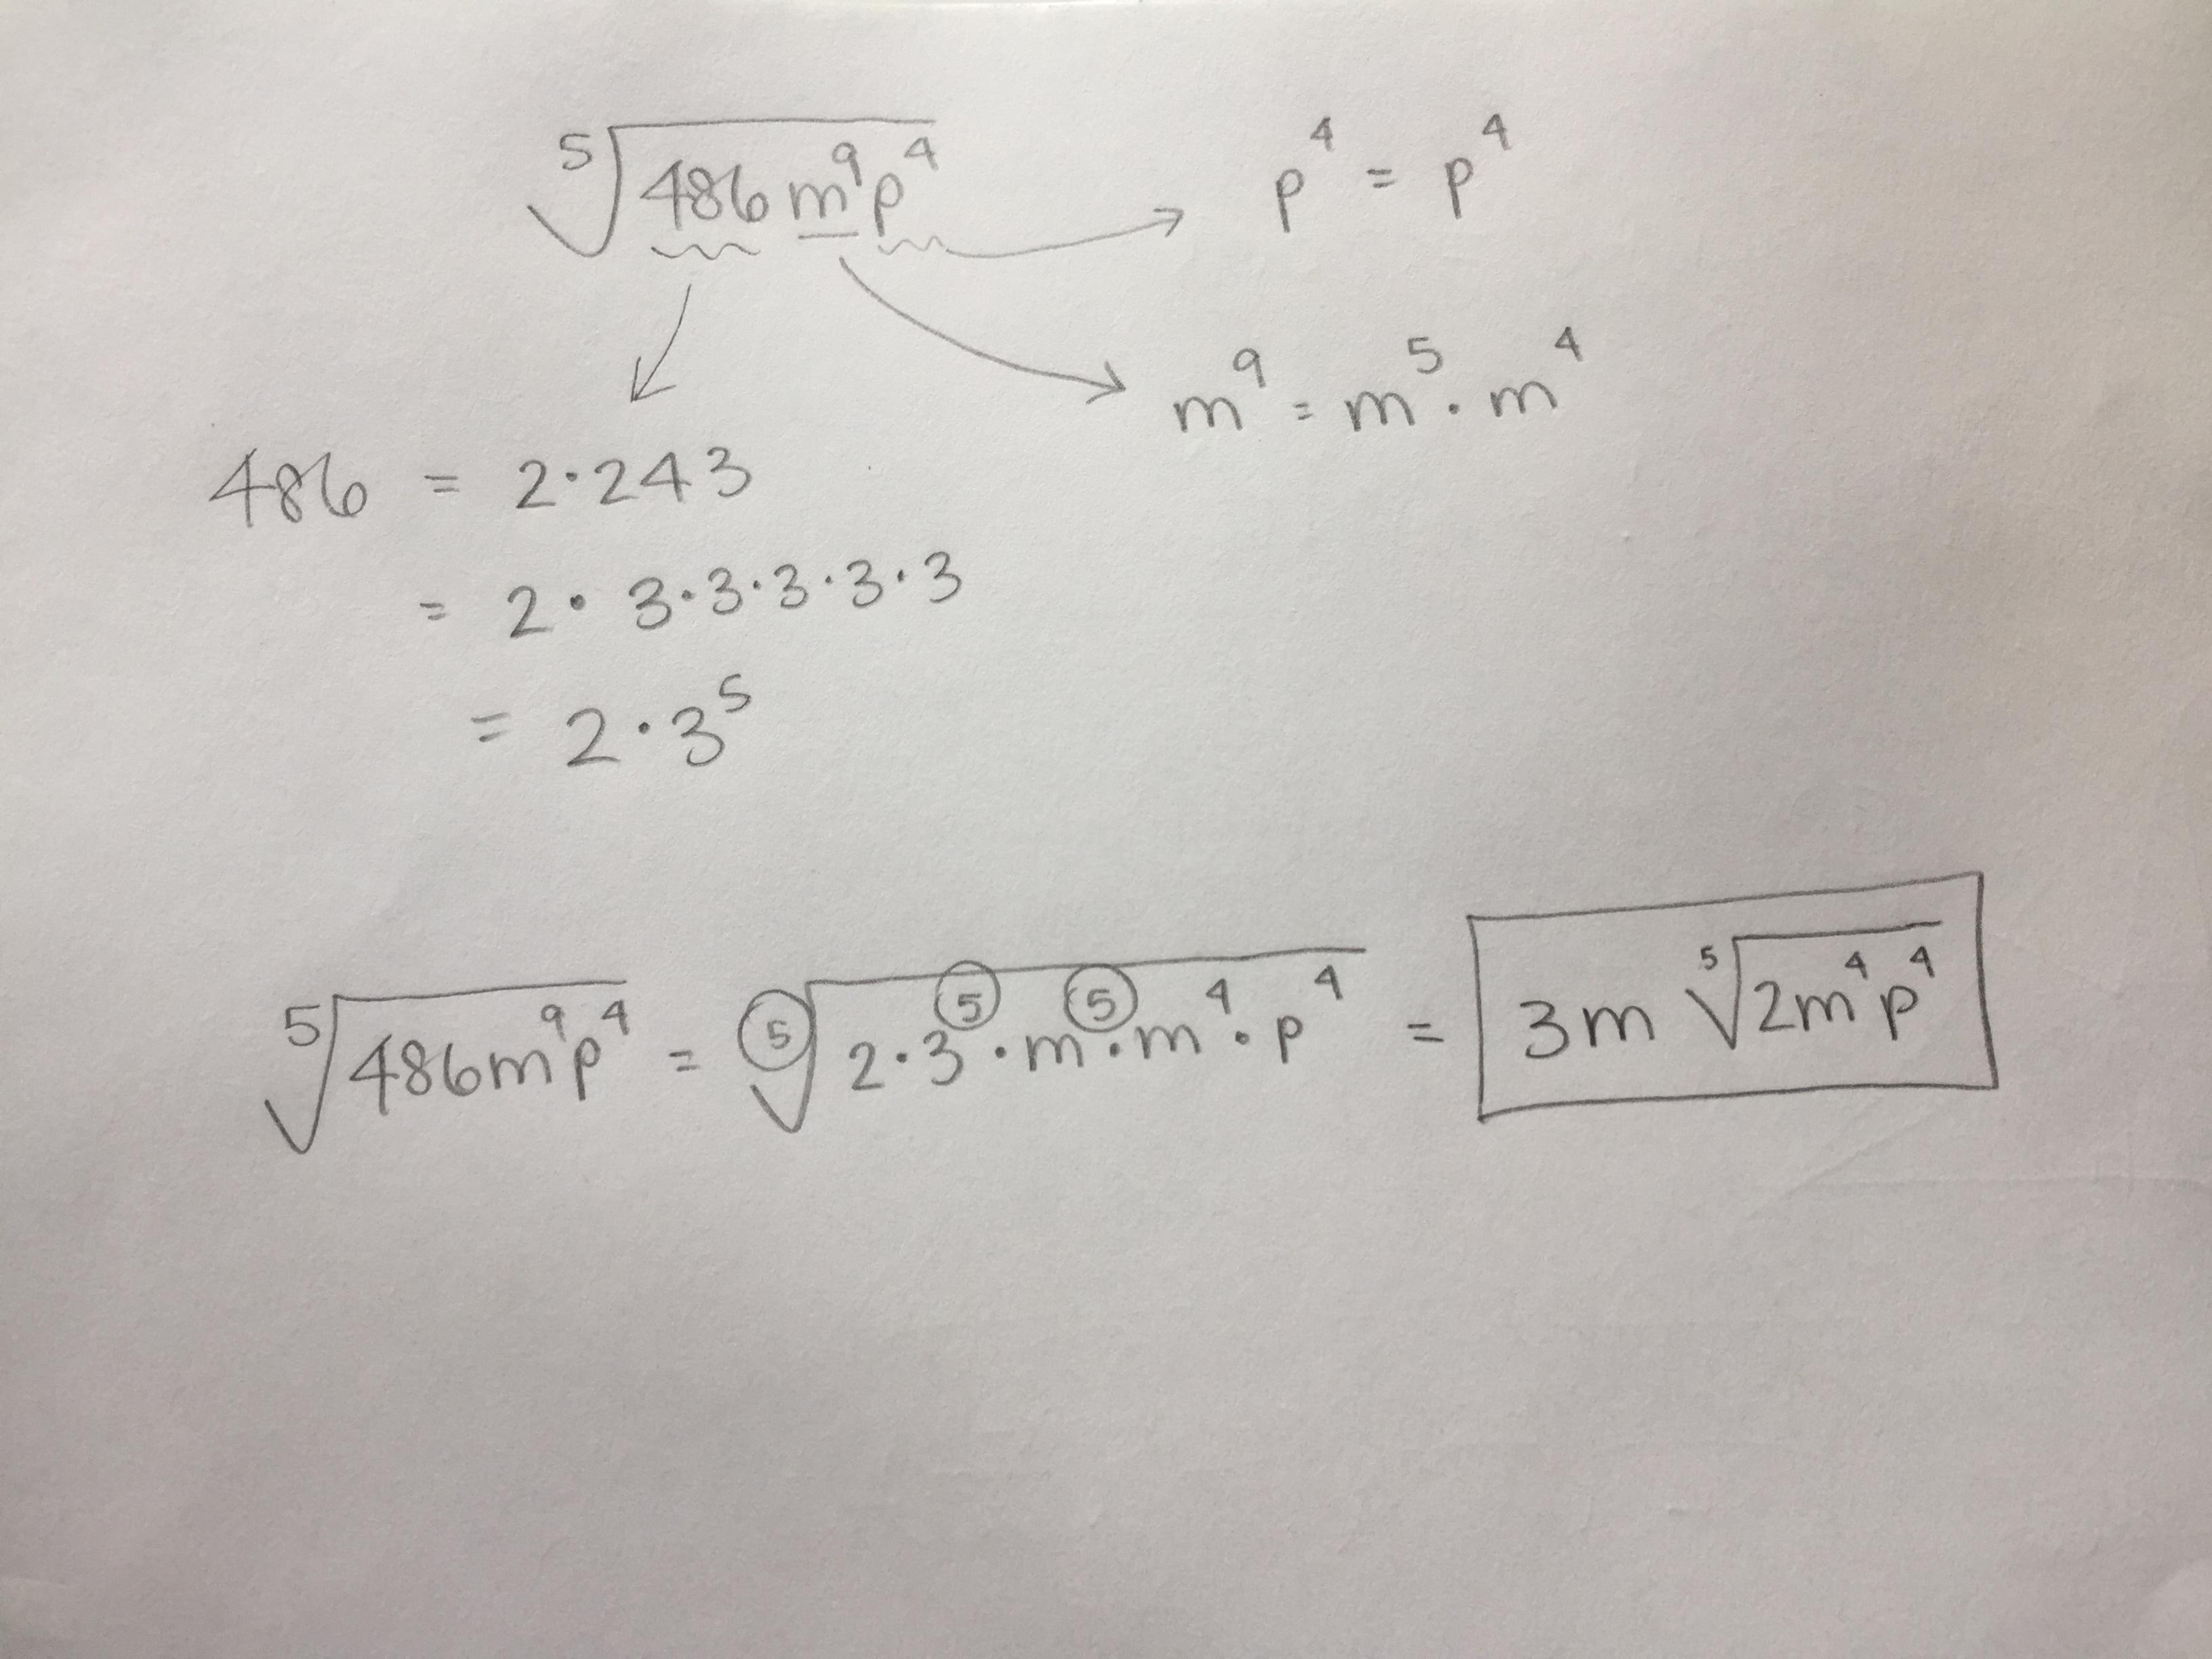 ⁵√(486m⁹p⁴)
p⁴ = p⁴
m⁹ = m⁵ · m⁴
486 = 2·243
= 2 · 3·3·3·3·3
= 2·3⁵
⁵√(486m⁹p⁴) = ⁵√(2·3⁵·m⁵·m⁴·p⁴) = 3m ⁵√(2m⁴p⁴)